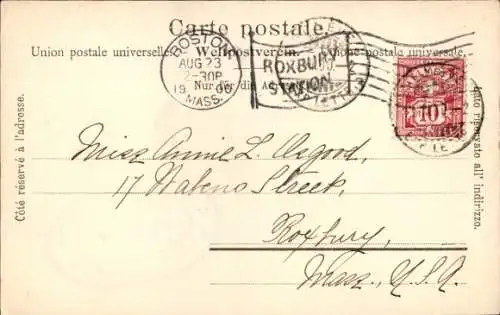 Carte postale.
Union postale universelle. Weltpostverein. Unione postale universale.
Nur für die Ad
BOSTON
AUG 23
2-30P
1900
MASS.
ROXBURY
STATION
10
Côté réservé à l'adresse.
Lato riservato all' indirizzo.
Miss Annie L. Osgood,
17 Wabeno Street,
Roxbury,
Mass., U.S.A.